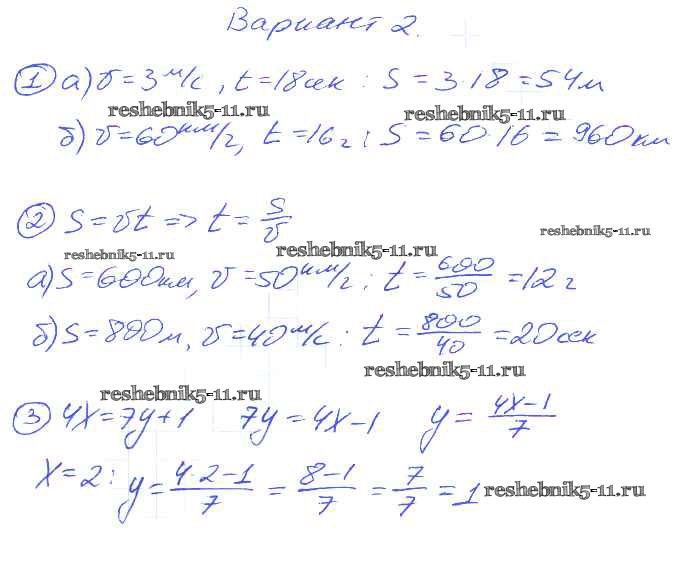 Вариант 2.
① а) v=3 м/с, t=18сек : S = 3·18 = 54м
reshebnik5-11.ru reshebnik5-11.ru
б) v=60км/г, t=16г ; S = 60·16 = 960км
② S=vt => t = S/v
reshebnik5-11.ru reshebnik5-11.ru reshebnik5-11.ru
а) S=600км, v=50км/г ; t = 600/50 = 12г
б) S=800м, v=40м/с : t = 800/40 = 20сек
reshebnik5-11.ru
reshebnik5-11.ru
③ 4x=7y+1 7y=4x-1 y = (4x-1)/7
x=2: y = (4·2-1)/7 = (8-1)/7 = 7/7 = 1 reshebnik5-11.ru